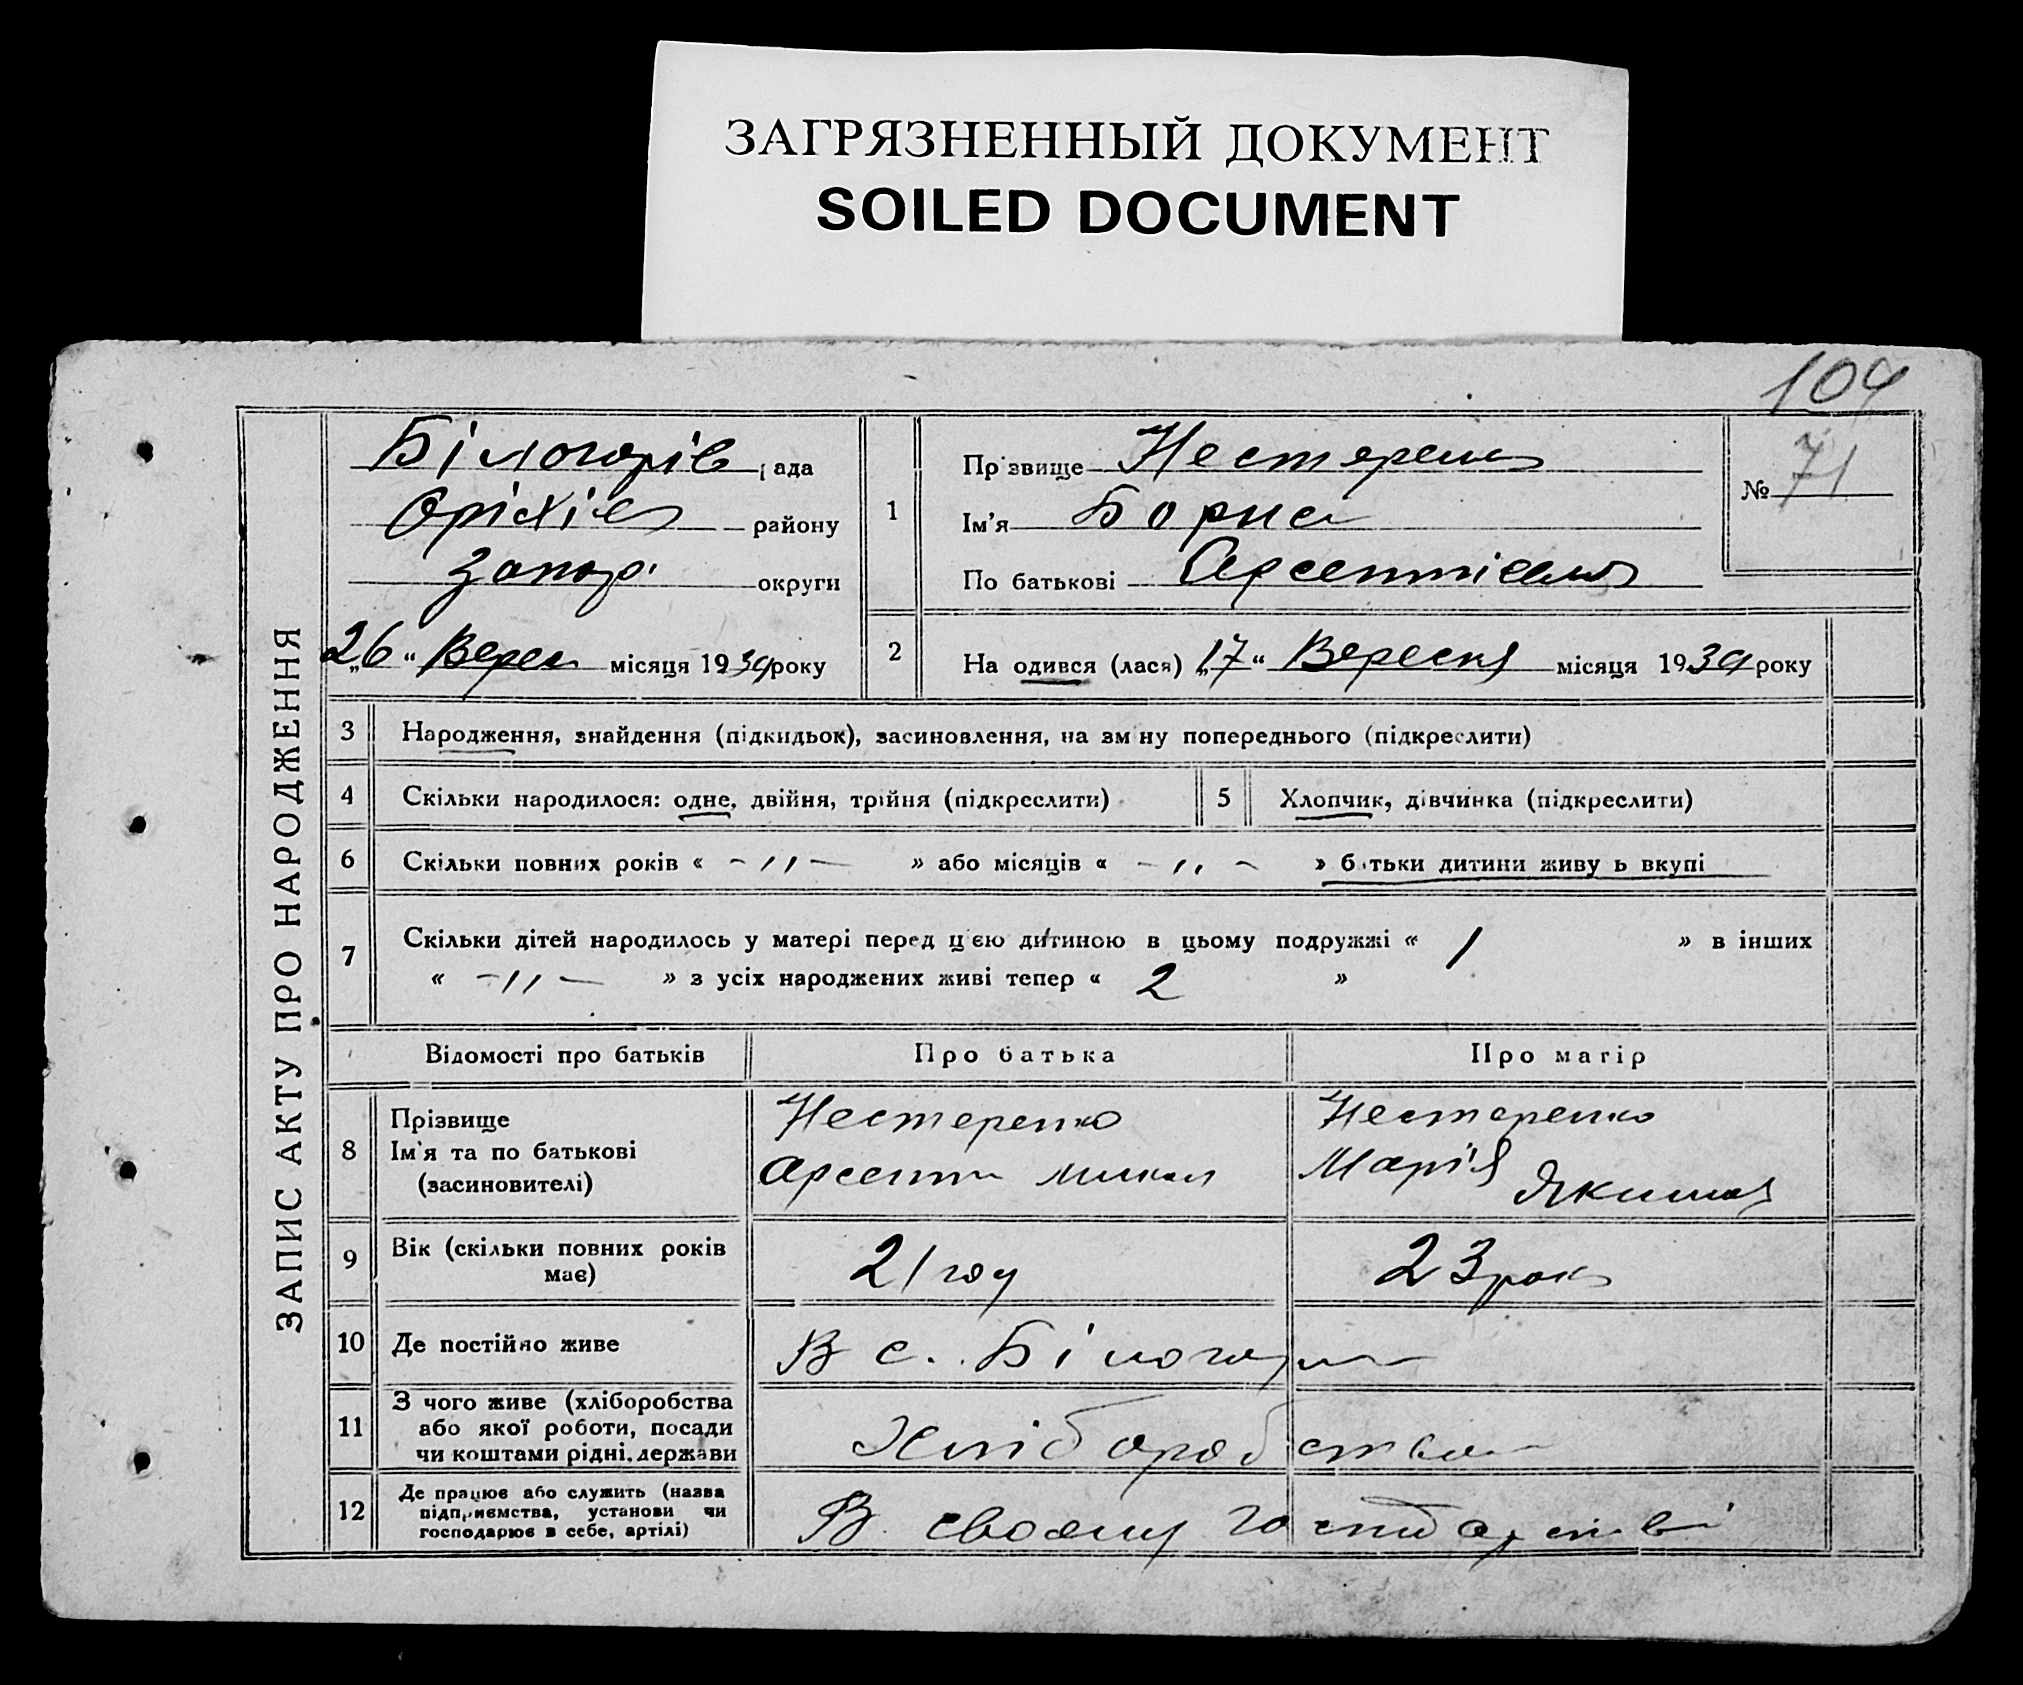 ЗАГРЯЗНЕННЫЙ ДОКУМЕНТ
SOILED DOCUMENT
104
ЗАПИС АКТУ ПРО НАРОДЖЕННЯ
Білогорів ада
Оріхів району
Запор. округи
„26“ Верес місяця 1930 року
1
Прізвище Нестеренко
Ім'я Борис
По батькові Арсентієвич
№ 71
2 На одився (лася) „17“ Вересня місяця 1930 року
3 Народження, знайдення (підкидьок), засиновлення, на зм ну попереднього (підкреслити)
4 Скільки народилося: одне, двійня, трійня (підкреслити) 5 Хлопчик, дівчинка (підкреслити)
6 Скільки повних років « -„- » або місяців « -„- » б тьки дитини живу ь вкупі
7 Скільки дітей народилось у матері перед цією дитиною в цьому подружжі « 1 » в інших
« -„- » з усіх народжених живі тепер « 2 »
Відомості про батьків Про батька Про матір
8 Прізвище Нестеренко Нестеренко
Ім'я та по батькові Арсенти Микол Марія
(засиновителі) Якимов
9 Вік (скільки повних років 21 год 23 рок
має)
10 Де постійно живе В с. Білогор
11 З чого живе (хліборобства
або якої роботи, посади Хліборобство
чи коштами рідні, держави
12 Де працює або служить (назва
підприємства, установи чи В своему господарстві
господарює в себе, артілі)